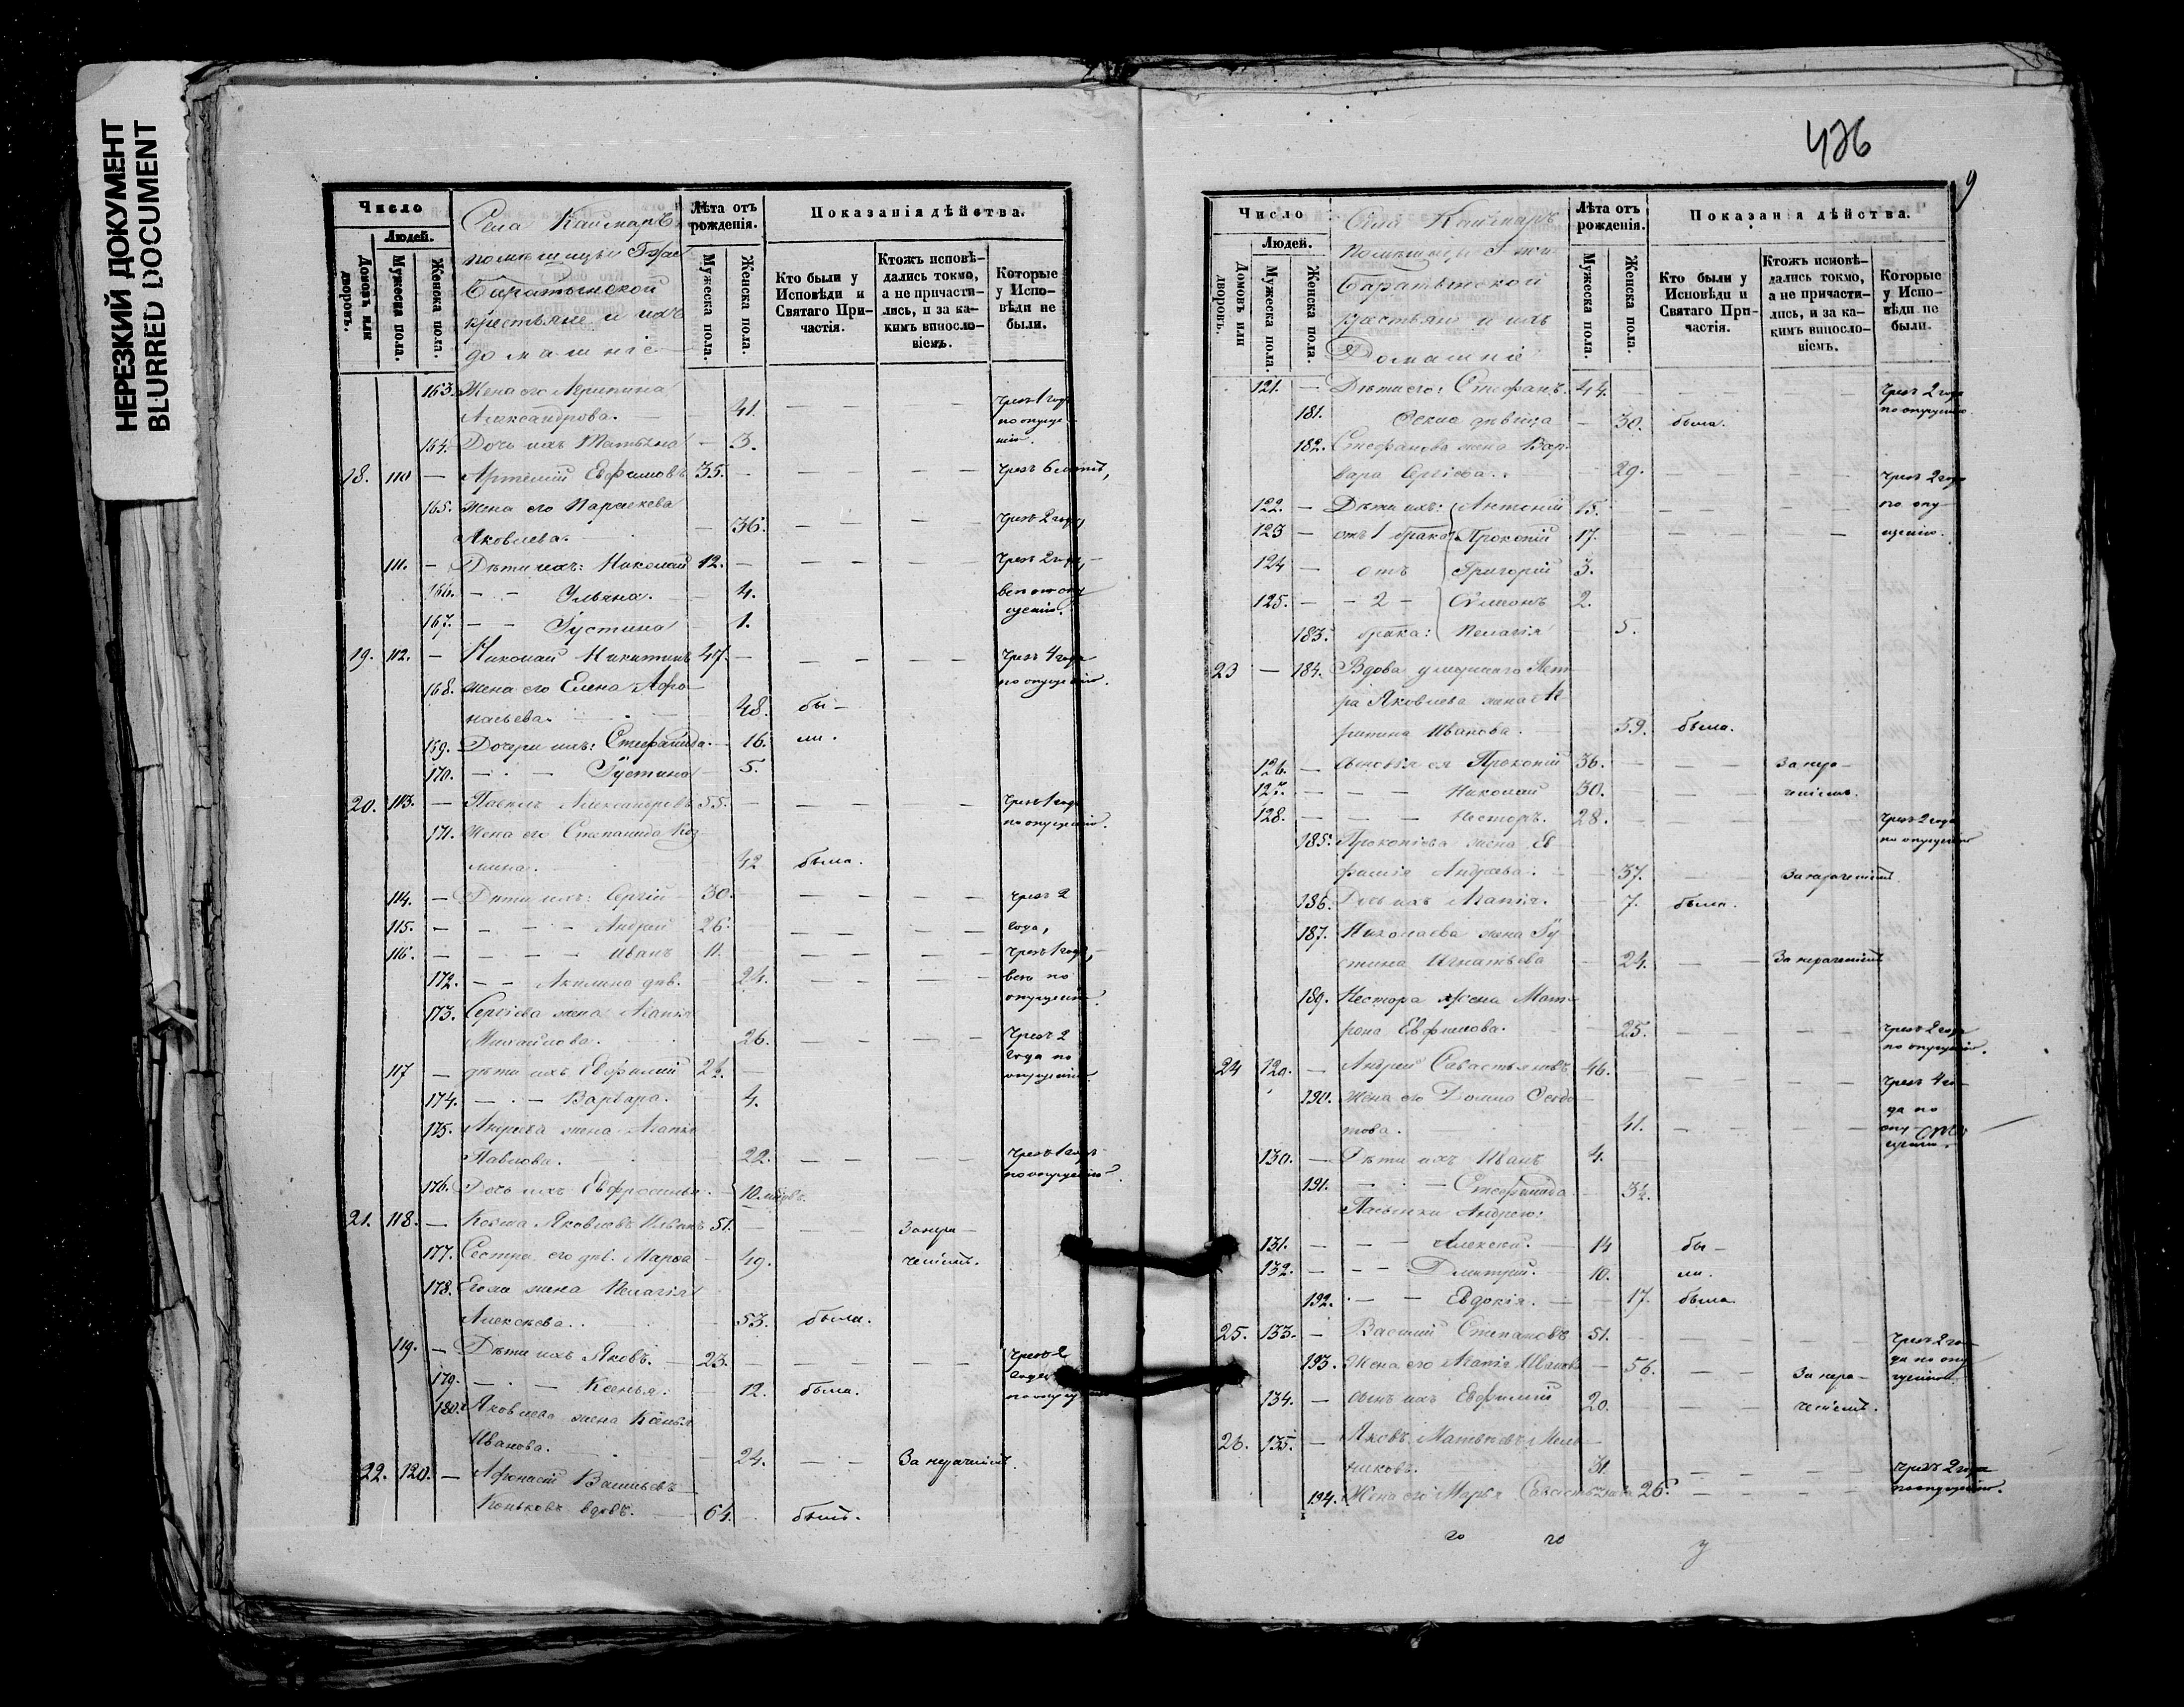 НЕРЕЗКИЙ ДОКУМЕНТ
BLURRED DOCUMENT
Число
Людей.
Домовъ или дворовъ.
Мужеска пола.
Женска пола.
Села Каймаръ
помѣщицы Гжи
Баратынской
крестьяне и ихъ
домашніе
Лѣта отъ рожденія.
Мужеска пола.
Женска пола.
Показанія дѣйства.
Кто были у Исповѣди и Святаго Причастія.
Ктожъ исповѣдались токмо, а не причастились, и за какимъ винословіемъ.
Которые у Исповѣди не были.
163. Жена его Агрипина
Александрова. — 41. — — — — Чрезъ 1 годъ
по опуще-
нію.
164. Дочь ихъ Татьяна — 3.
18. 110 — Артемій Евфимовъ 35. — — — — — Чрезъ 6 лѣтъ,
165. Жена его Параскева
Яковлева. — 36. — — — — Чрезъ 2 года,
111. — Дѣти ихъ: Николай 12. — — — — — Чрезъ 2 года,
166. — — Ульяна. — 4. вси по опу
щенію.
167. — — Іустина — 1.
19. 112. — Николай Никитинъ 47. — — — — — Чрезъ 4 года
по опущенію.
168. Жена его Елена Афа-
насьева. — 48. бы-
169. Дочери ихъ: Стефанида. — 16. ли.
170. — — Іустина — 5.
20. 113. — Павелъ Александровъ 55. — — — — — Чрезъ 1 годъ
по опущенію.
171. Жена его Степанида Коз-
мина. 42 была.
114. — Дѣти ихъ: Сергій — 30. — — — — — Чрезъ 2
115. — — — — Андрей 26. — — — — — года,
116. — — — — Иванъ 11. — — — — — Чрезъ 1 годъ,
172. — — Акилина дѣв. — 24. — — — — вси по
опущенію.
173. Сергіева жена Агапія
Михайлова. 26. — — — — Чрезъ 2
года по
опущенію.
117 — дѣти ихъ Евфимій —
174. — — Варвара. — 4.
175. Андрея жена Агапія
Павлова. 22. — — — — Чрезъ 1 годъ
по опущенію.
176. Дочь ихъ Евфросинья. — 10.
21. 118. — Козма Яковлевъ 51. — — — За нера-
177. Сестра его дѣв. Марѳа — 49. ченіемъ.
178. жена Пелагія
Алексѣева. 53. была.
119. — Дѣти ихъ Яковъ. — 23. — — — — — Чрезъ 2
года
179. — — Ксенья. — 12. была. по опущ
180. Яковлева жена Ксенья
Иванова. 24. — — За нераченіемъ.
22. 120. — Афонасій Васильевъ
Коньковъ вдовъ. — 64. — былъ.
436
9
Число
Людей.
Домовъ или дворовъ.
Мужеска пола.
Женска пола.
Села Каймаръ
помѣщицы Г жи
Баратынской
крестьяне и ихъ
Домашніе
Лѣта отъ рожденія.
Мужеска пола.
Женска пола.
Показанія дѣйства.
Кто были у Исповѣди и Святаго Причастія.
Ктожъ исповѣдались токмо, а не причастились, и за какимъ винословіемъ.
Которые у Исповѣди не были.
121. — Дѣти его: Стефанъ. 44. — — — — — Чрезъ 2 года
по опущенію.
181. Ѳекла дѣвица — 30. была.
182. Стефанова жена Вар-
вара Сергіева. 29. — — — — Чрезъ 2 года
122. — Дѣти ихъ: Антоній 15. — — — — — по опу-
123 — отъ 1 брака Прокопій 17. — — — — — щенію.
124 — отъ Григорій 3. —
125. — — 2 — Симонъ 2. —
183. брака: Пелагія — 5.
23 — 184. Вдова умершаго Пет-
ра Яковлева жена Аг-
рипина Иванова. — 59. была.
126. — Сыновья ея Прокопій 36. — — — За нера-
127. — — — Николай 30. ченіемъ.
128. — — — Несторъ. 28. — — — — — Чрезъ 2 года
по опущенію
185. Прокопіева жена Ев-
фимія Андреева. — 37. — — За нераченіемъ.
186. Дочь ихъ Агапія. — 7. была.
187. Николаева жена Іу-
стина Игнатьева — 24. — — За нераченіемъ
189. Нестора жена Мат-
рона Евфимова. — 25. — — — — Чрезъ 2 года
по опущенію.
24 129. — Андрей Савастьяновъ 46. — — — — — Чрезъ 4 го-
190. Жена его Домна Ѳедо-
това. 41. — — — — да по
опу-
щенію.
130. — Дѣти ихъ Иванъ 4. —
191. — — Стефанида — 3½.
Пасынки Андрею:
131. — — — Алексѣй. — 14 бы-
132. — — — Дмитрій. — 10. ли.
192. — — Евдокія. — — 17. была.
25. 133. — Василій Степановъ 51. — — — — — Чрезъ 2 го-
193. Жена его Агапія Иванова — 56. — — да по опу
щенію.
134. — сынъ ихъ Евфимій 20. — — — За нера-
ченіемъ.
26. 135. — Яковъ Матвѣевъ Мель-
никовъ. 31. — — — — — Чрезъ 2 года
194. Жена его Марья Савастьянова 26. по опущенію.
го го у